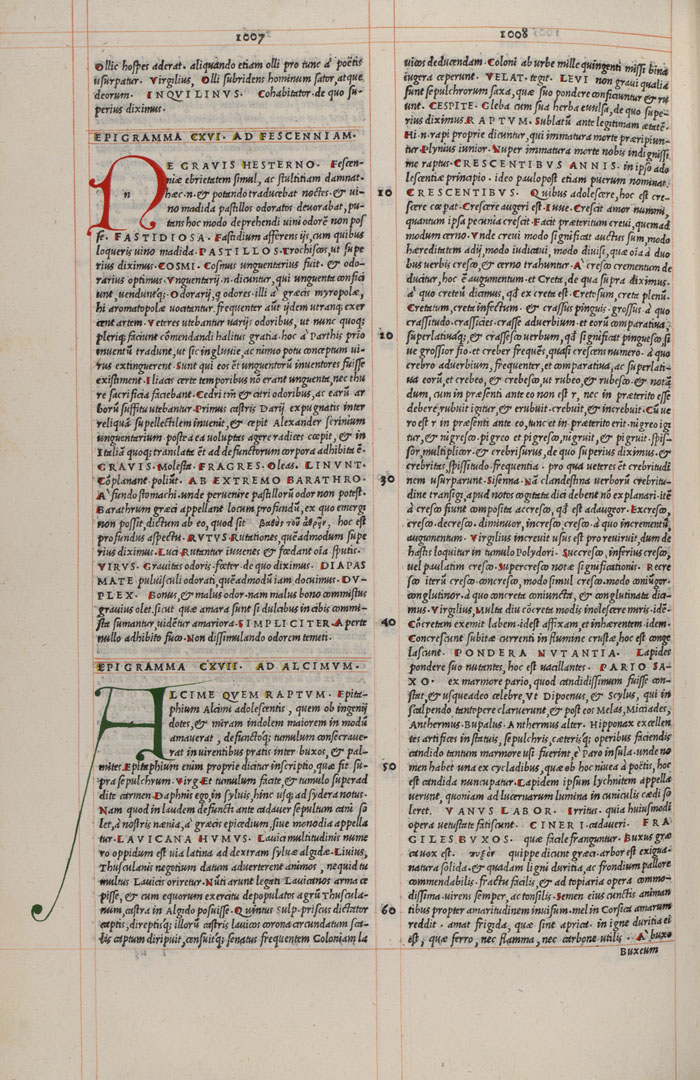 1007
ollic hospes aderat. aliquando etiam olli pro tunc à poëtis
usurpatur. Virgilius, Olli subridens hominum sator, atque
deorum. INQVILINVS. Cohabitator. de quo su-
perius diximus.
EPIGRAMMA CXVI. AD FESCENNIAM.
NE GRAVIS HESTERNO. Fescen-
niæ ebrietatem simul, ac stultitiam damnat.
hæc.n. & potando traducebat noctes. & ui-
no madida pastillos odoratos deuorabat, pu-
tans hoc modo deprehendi uini odorē non pos
se. FASTIDIOSA. Fastidium afferens ijs, cum quibus
loqueris uino madida. PASTILLOS. Trochiscos, ut supe
rius diximus. COSMI. Cosmus unguentarius fuit. & odo-
rarius optimus. Vnguentarij.n. dicuntur, qui unguenta confici
unt, uenduntq;. Odorarij, q odores. illi à græcis myropolæ,
hi aromatopolæ uocantur. frequenter aūt ijdem utranq; exer
cent artem. Veteres utebantur uarijs odoribus, ut nunc quoq;
pleriq; faciunt cōmendandi halitus gratia. hoc à Parthis prio
inuentū tradunt, ut sic inglusie, ac nimio potu conceptum ui-
rus extinguerent. Sunt qui eos ēt unguentorū inuentores fuisse
existiment. Iliacis certe temporibus nō erant unguenta, nec thu
re sacrificia fiebant. Cedri tm̄ & citri odoribus, ac earū ar
borū suffitu utebantur. Primus castris Darij expugnatis inter
reliquā supellectilem inuenit, & cœpit Alexander scrinium
unguentarium. postea ea uoluptas agere radices cœpit, & in
Italiā quoq; translata ēt ad defunctorum corpora adhibita ē.
GRAVIS. Molesta. FRAGRES. Oleas. LINVNT.
Cōplanant. poliūt. AB EXTREMO BARATHRO.
A fundo stomachi. unde peruenire pastillorū odor non potest.
Barathrum græci appellant locum profundū, ex quo emergi
non possit, dictum ab eo, quod sit βαθὺς τοῦ ἀθρεῖν, hoc est
profundus aspectu. RVTVS. Rutationes, quēadmodum supe
rius diximus. Luci. Rutantur iuuenes & fœdant oīa sputis.
VIRVS. Grauitas odoris. fœtor. de quo diximus. DIAPAS
MATE. puluisculi odorati, quēadmodū iam docuimus. DV-
PLEX. Bonus, & malus odor. nam malus bono commistus
grauius olet. sicut quæ amara sunt si dulcibus in cibis commi-
sta sumantur, uidētur amariora. SIMPLICITER. Aperte
nullo adhibito fuco. Non dissimulando odorem temeti.
EPIGRAMMA CXVII. AD ALCIMVM.
ALCIME QVEM RAPTVM. Epita-
phium Alcimi adolescentis, quem ob ingenij
dotes, & miram indolem maiorem in modū
amauerat, defunctoq; tumulum consecraue-
rat in uirentibus pratis inter buxos, & pal-
mites. Epitaphium enim proprie dicitur inscriptio, quæ fit su-
pra sepulchrum. Virg. Et tumulum facite, & tumulo superad
dite carmen. Daphnis ego, in syluis, hinc usq; ad sydera notus.
Nam quod in laudem defuncti ante cadauer sepultum cani so
let, à nostris nænia, à græcis epicedium, siue monodia appella
tur. LAVICANA HVMVS. Lauici multitudinis nume
ro oppidum est uia latina ad dextram syluæ algidæ. Liuius,
Thusculanis negotium datum aduerterent animos, nequid tu
multus Lauicis oriretur. Nūti arunt legati Lauicanos arma ce
pisse, & cum equorum exercitu depopulatos agrū Thuscula-
num, castra in Algido posuisse. Quintus Sulp. priscus dictator
captis, direptisq; illorū castris lauicos corona circundatum sca-
lis captum diripuit, censuitq; senatus frequentem Coloniam la
1008
uicos deducendam. Coloni ab urbe mille quingenti missi bina
iugera ceperunt. VELAT. tegit. LEVI non graui qualia
sunt sepulchrorum saxa, quæ suo pondere conficiuntur & ru
unt. CESPITE. Gleba cum sua herba euulsa, de quo supe-
rius diximus. RAPTVM. Sublatū ante legitimam ætatē.
Hi.n. rapi proprie dicuntur, qui immatura morte præripiun-
tur. Plynius iunior. Nuper immatura morte nobis indignissi
me raptus. CRESCENTIBVS ANNIS. in ipso ado
lescentiæ principio. ideo paulopost etiam puerum nominat.
10 CRESCENTIBVS. Quibus adolescere, hoc est cre-
scere cœpat. Crescere augeri est. Iuue. Crescit amor nummi,
quantum ipsa pecunia crescit. Facit præteritum creui, quemad
modum cerno. Vnde creui modo significat auctus sum, modo
hæreditatem adij, modo iudicaui, modo diuisi, quæ oīa à duo
bus uerbis cresco, & cerno trahuntur. A cresco crementum de
ducitur, hoc ē augumentum. et Creta, de qua supra diximus.
à quo creteū dicimus, qd ex creta est. Cretosum, creta plenū.
Cretatum, creta infectum. & crassus pinguis. grossus à quo
crassitudo. crassicies. crasse aduerbium. et eorū comparatiua:
20 superlatiuaq;. & crassesco uerbum, qd significat pinguesco si
ue grossior fio. et creber frequēs, quasi crescens numero. à quo
crebro aduerbium, frequenter, et comparatiua, ac superlati-
ua eorū. et crebeo, & crebesco, ut rubeo, & rubesco. & notā
dum, cum in præsenti ante eo non est r, nec in præterito esse
debere. rubui igitur, & erubuit. crebuit, & increbuit. Cū ue
ro est r in præsenti ante eo, tunc et in præterito erit. nigreo igi
tur, & nigresco. pigreo et pigresco, nigruit, & pigruit. spis-
sor, multiplicor. & crebrisurus, de quo superius diximus. &
crebritas, spissitudo. frequentia. pro qua ueteres ēt crebritudi
30 nem usurparunt. Sisenna. Nā clandestina uerborū crebritu-
dine transigi, apud notos cogitata dici debent nō explanari. itē
à cresco fiunt composita accresco, qd est adaugeor. Excresco,
cresco. decresco. diminuor, increso, cresco. à quo incrementū,
augumentum. Virgilius increuit usus est pro reuiruit, dum de
hastis loquitur in tumulo Polydori. Succresco, inferius cresco,
uel paulatim cresco. Supercresco notæ significationis. Recre
sco iterū cresco. concresco, modo simul cresco. modo coniūgor.
conglutinor. à quo concreta coniuncta, & conglutinata dici-
mus. Virgilius, Multa diu cōcreta modis inolescere miris. idē.
40 Cōcretam exemit labem. idest affixam, et inhærentem. idem.
Concrescunt subitæ currenti in flumine crustæ, hoc est conge
lascunt. PONDERA NVTANTIA. Lapides
pondere suo nutantes, hoc est uacillantes. PARIO SA-
XO. ex marmore pario, quod candidissimum fuisse con-
stat, & usqueadeo celebre, Vt Dipoenus, & Scylus, qui in
scalpendo tantopere claruerunt, & post eos Melas, Micciades,
Anthermus. Bupalus. Anthermus alter. Hipponax excellen
tes artifices in statuis, sepulchris, cæterisq; operibus faciendis
candido tantum marmore usi fuerint, è Paro insula. unde no
50 men habet una ex cycladibus, quæ ob hoc niuea à poëtis, hoc
est candida nuncupatur. Lapidem ipsum lychnitem appella
uerunt, quoniam ad lucernarum lumina in cuniculis cædi so
leret. VANVS LABOR. Irritus. quia huiusmodi
opera uetustate fatiscunt. CINERI. cadaueri. FRA-
GILES BVXOS. quæ facile franguntur. Buxus græ
ca uox est. πύξος quippe dicunt græci. arbor est exigua.
natura solida, & quadam ligni duritia, ac frondium pallore
commendabilis. fractu facilis, & ad topiaria opera commo-
dissima. uirens semper, ac tonsilis. Semen eius cunctis animan
60 tibus propter amaritudinem inuisum. mel in Corsica amarum
reddit. amat frigida, quæ sint aprica. in igne duritia ei
est, quæ ferro, nec flamma, nec carbone utilis. A buxo
Buxeum